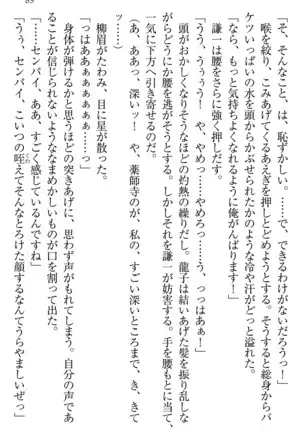 「な、なに、言って……あ、恥ずかしい……。で、できるわけがないだろっ」
喉を絞り、こみあげてくるあえぎを押しとどめようとする。そうすると総身からバ
ケツいっぱいの水を頭からかぶせられたかのような冷や汗がどっと溢れた。
「なら、もっと気持ちよくなれるように俺がんばります!」
謙一は腰をさらに強く押しだす。
「うう、うぅぅう! や、やめっ……やめろっ……う、っっはぁぁ!」
頭がおかしくなりそうなほどの灼熱の繰りだし。龍子は結いあげた髪を振り乱しな
がらどうにか腰を逃がそうとする。しかしそれを謙一が妨害する。手を腰もとに当て、
一気に下方へ引き寄せるのだ。
「あ、ああっ、深いッ! や、薬師寺のが、私の、すごい深いところまで、き、きて
る……っ」
柳眉がたわみ、目に星が散った。
「っはあああぁぁぁぁ!」
身体が弾けるかと思うほどの突きあげに、思わず声がもれてしまう。自分の声であ
ることが信じられないようななまめかしいものが口を割って出た。
「うう、センパイ、ああ、すごく感じているんですね」
「うぅ、センパイ、こいつの咥えてそんなとろけた顔するなんてうらやましいぜっ」